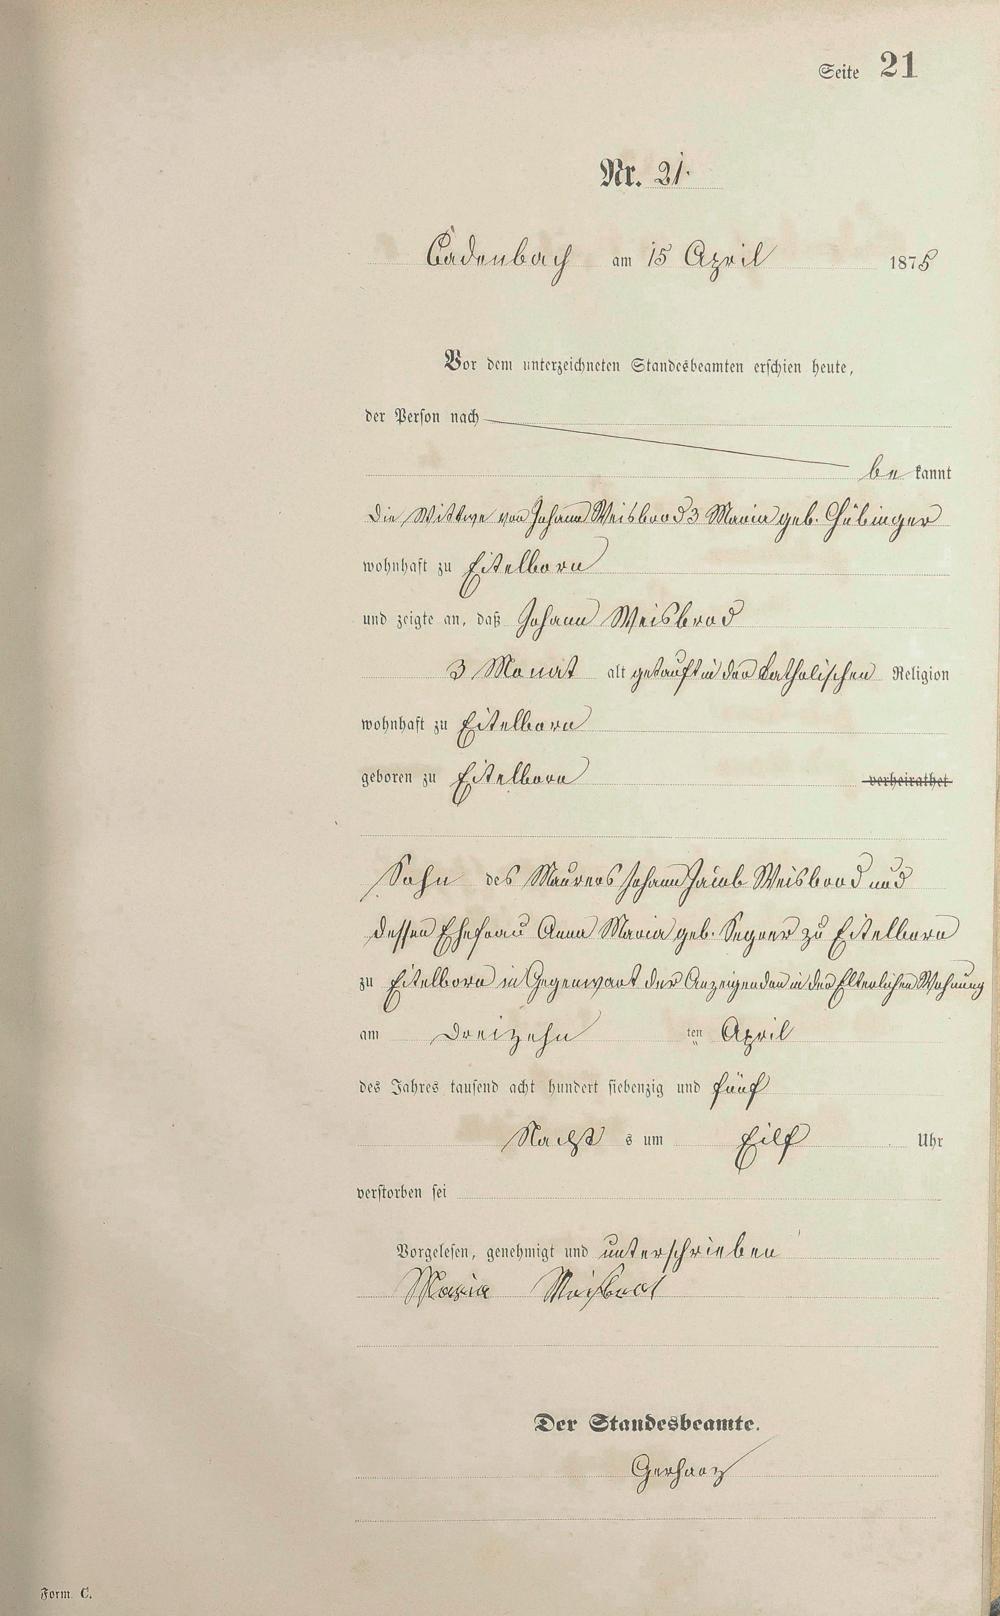 Seite 21
Nr. 21.
Cadenbach am 15 April 1875
Vor dem unterzeichneten Standesbeamten erschien heute,
der Person nach
be kannt
die Wittwe von Johann Weisbrod 3 Maria geb. Hübinger
wohnhaft zu Eitelborn
und zeigte an, daß Johann Weisbrod
3 Monat alt getauft in der Katholischen Religion
wohnhaft zu Eitelborn
geboren zu Eitelborn verheirathet
Sohn des Maurers Johann Jacob Weisbrod und
dessen Ehefrau Anna Maria geb. zu Eitelborn
zu Eitelborn in Gegenwart der Anzeigenden in der Elterlichen Wohnung
am Dreizehn ten April
des Jahres tausend acht hundert siebenzig und fünf
Nacht s um Eilf Uhr
verstorben sei
Vorgelesen, genehmigt und unterschrieben
Maria Weisbrod
Der Standesbeamte.
Gerharz
Form. C.